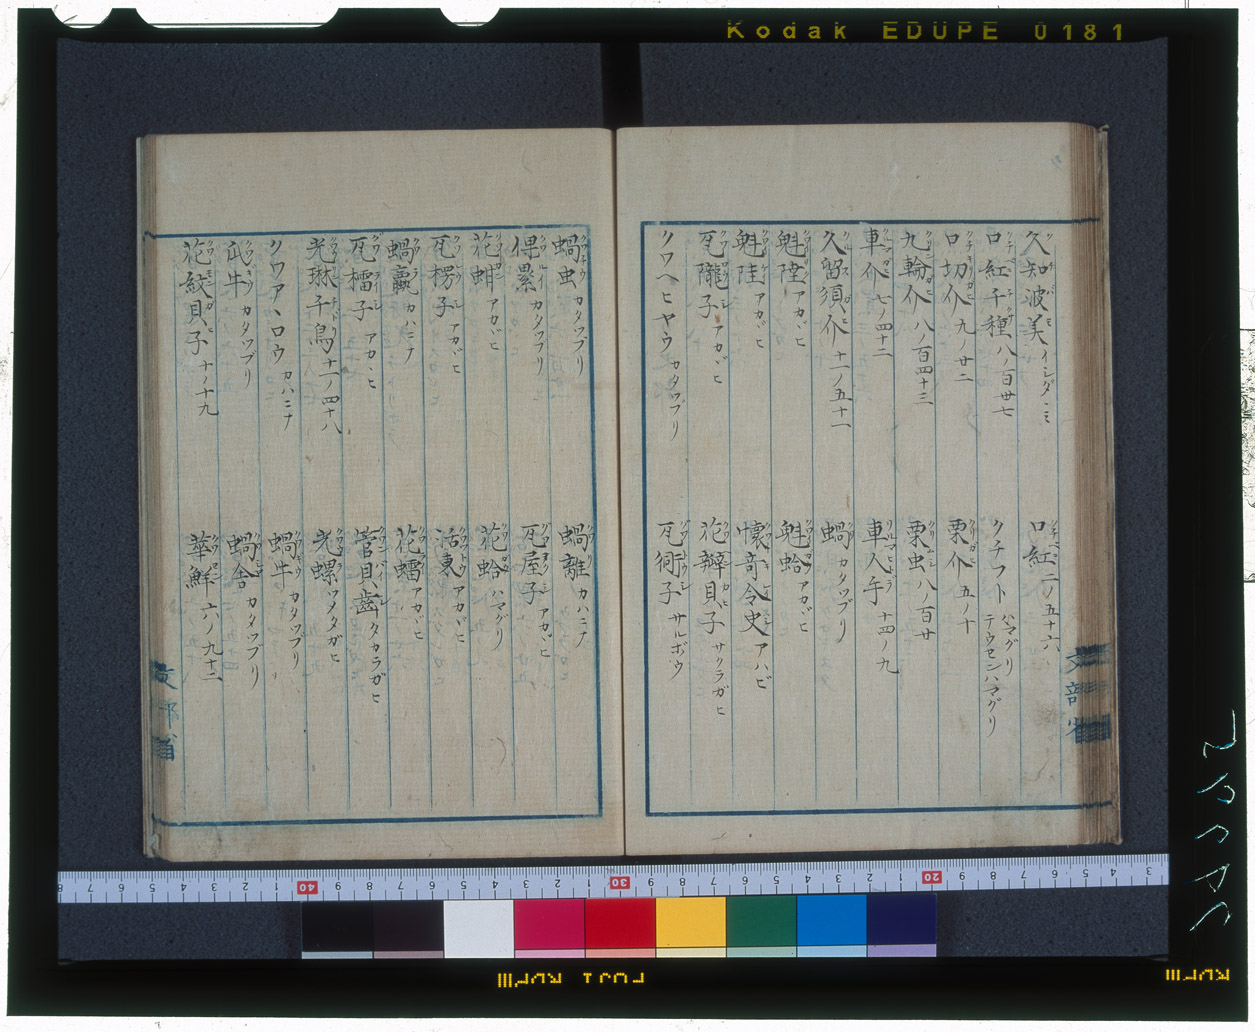 Kodak EDUPE 0181
久知波美 イシダヽミ
口紅 二ノ五十六
口紅千種 八ノ百廿七
クチフト ハマグリ テウセンハマグリ
口切介 九ノ廿二
栗介 五ノ十
九輪介 八ノ百四十三
栗虫 八ノ百廿
車介 七ノ四十二
車人午 十四ノ九
久留須介 十一ノ五十一
蝸 カタツブリ
魁陸 アカヾヒ
魁蛤 アカヾヒ
魁陸 アカヾヒ
懐竒令史 アハビ
瓦隴子 アカヾヒ
花辧貝子 サクラガヒ
クワヘヒヤウ カタツブリ
瓦衖子 サルボウ
文部省
蝸虫 カタツブリ
蝸離 カハニナ
倮累 カタツブリ
瓦屋子 アカヾヒ
花蚶 アカヾヒ
花蛤 ハマグリ
瓦楞子 アカヾヒ
活東 アカヾヒ
蝸蠃 カハニナ
花蠕 アカヾヒ
瓦櫺子 アカヾヒ
管貝歯 タカラガヒ
光琳千鳥 十一ノ四十八
光螺 ツメタガヒ
クワアヽロウ カハニナ
蝸牛 カタツブリ
瓜牛 カタツブリ
蝸舎 カタツブリ
花紋貝子 十ノ十九
華鮮 六ノ九十二
文部省
FUJI RDPIII
RDPIII